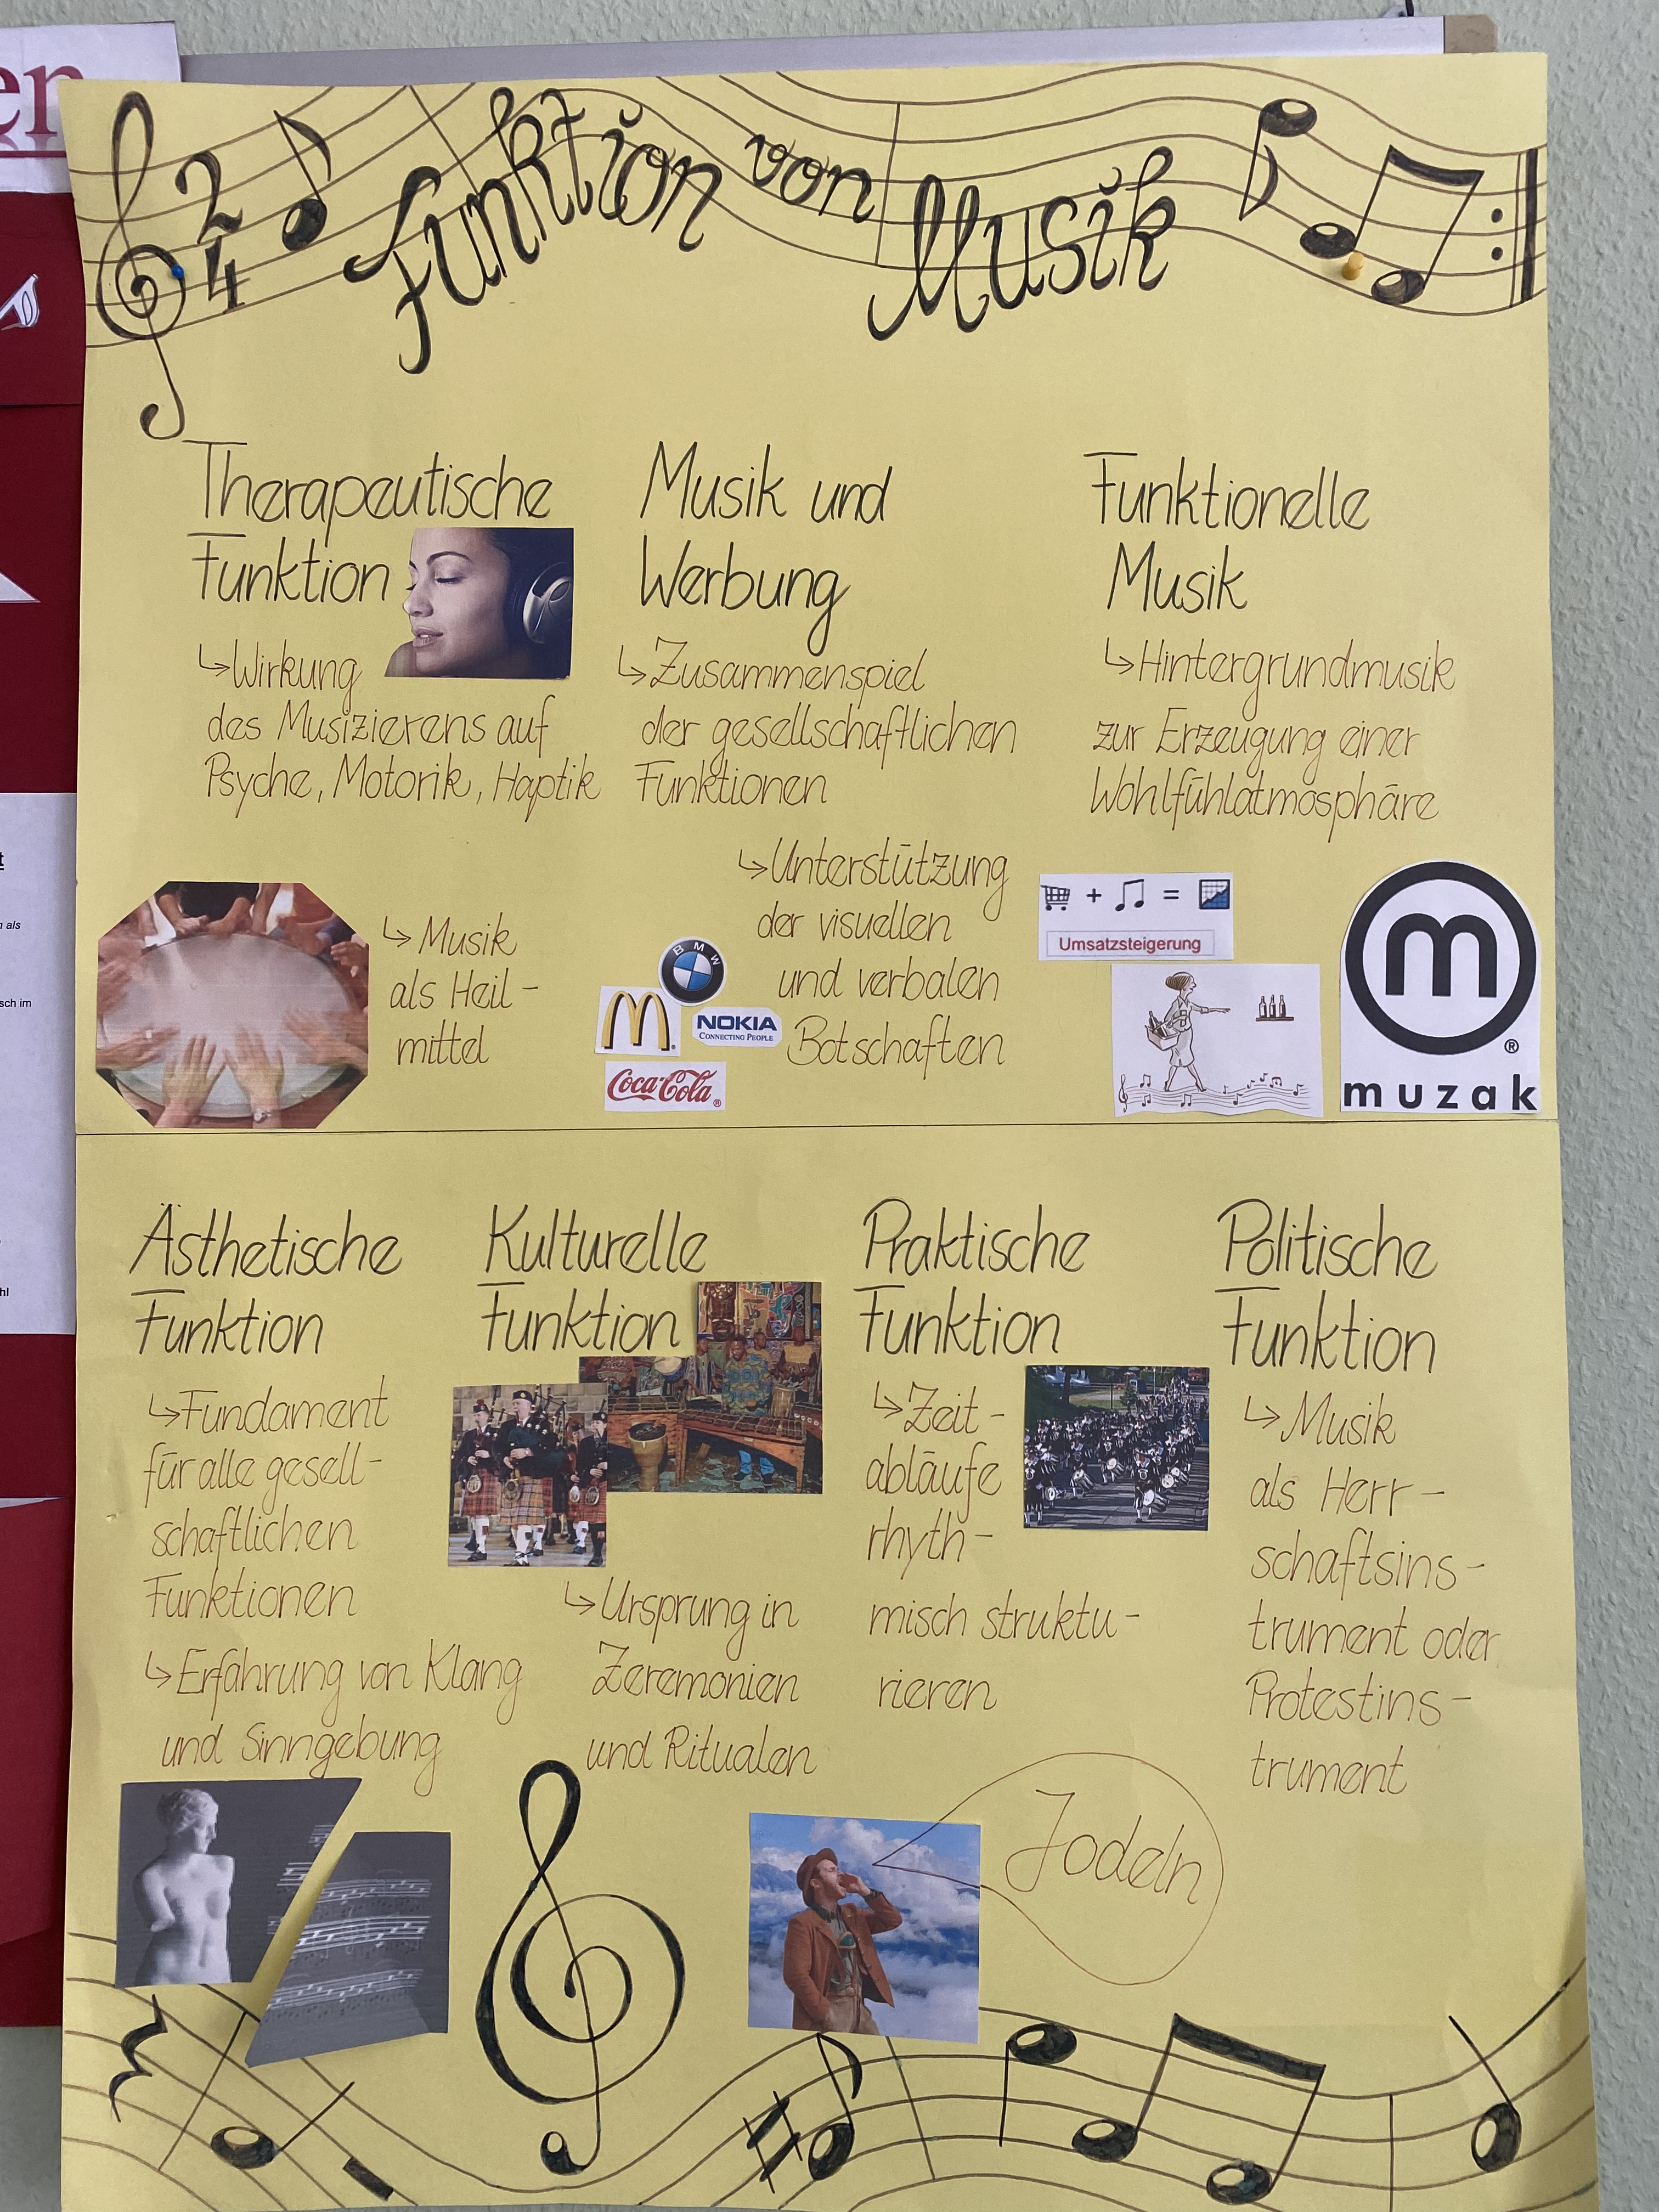 en
2
4
Funktion von Musik
Therapeutische
Funktion
↳ Wirkung
des Musizierens auf
Psyche, Motorik, Haptik
↳ Musik
als Heil-
mittel
Musik und
Werbung
↳ Zusammenspiel
der gesellschaftlichen
Funktionen
↳ Unterstützung
der visuellen
und verbalen
Botschaften
BMW
NOKIA
CONNECTING PEOPLE
Coca-Cola®
Funktionelle
Musik
↳ Hintergrundmusik
zur Erzeugung einer
Wohlfühlatmosphäre
+ =
Umsatzsteigerung
m®
muzak
Ästhetische
Funktion
↳ Fundament
für alle gesell-
schaftlichen
Funktionen
↳ Erfahrung von Klang
und Sinngebung
Kulturelle
Funktion
↳ Ursprung in
Zeremonien
und Ritualen
Praktische
Funktion
↳ Zeit-
abläufe
rhyth-
misch struktu-
rieren
Politische
Funktion
↳ Musik
als Herr-
schaftsins-
trument oder
Protestins-
trument
Jodeln